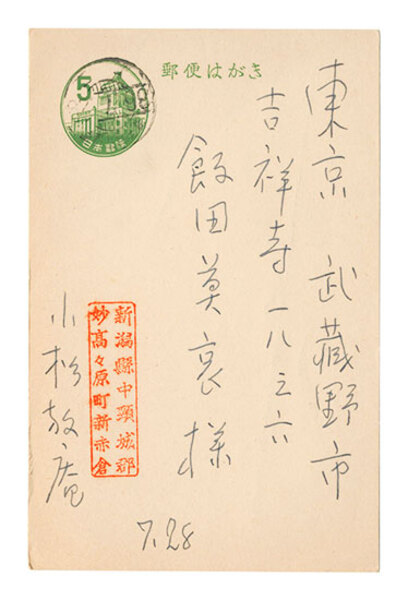 郵便はがき
5
日本郵便
東京 武藏野市
吉祥寺一八三六
飯田莫哀様
新潟縣中頸城郡
妙高々原町新赤倉
小杉放庵
7.28